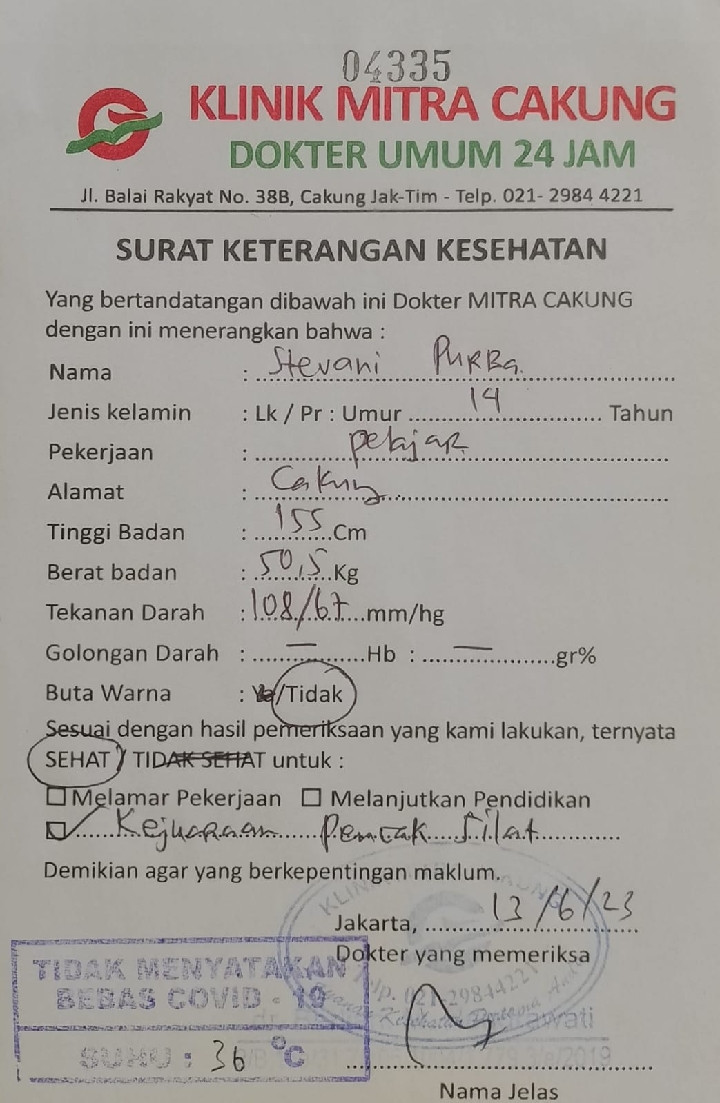 04335
KLINIK MITRA CAKUNG
DOKTER UMUM 24 JAM
Jl. Balai Rakyat No. 38B, Cakung Jak-Tim - Telp. 021- 2984 4221
SURAT KETERANGAN KESEHATAN
Yang bertandatangan dibawah ini Dokter MITRA CAKUNG
dengan ini menerangkan bahwa :
Nama : Stevani PURBa.
Jenis kelamin : Lk / Pr : Umur 14 Tahun
Pekerjaan : pelajar
Alamat : Cakung
Tinggi Badan : 155 Cm
Berat badan : 50,5 Kg
Tekanan Darah : 108/67 mm/hg
Golongan Darah : — Hb : — gr%
Buta Warna : Ya/Tidak
Sesuai dengan hasil pemeriksaan yang kami lakukan, ternyata
SEHAT / TIDAK SEHAT untuk :
Melamar Pekerjaan Melanjutkan Pendidikan
Kejuaraan Pencak Silat
Demikian agar yang berkepentingan maklum.
Jakarta, 13/6/23
Dokter yang memeriksa
TIDAK MENYATAKAN
BEBAS COVID - 19
SUHU : 36 °C
Nama Jelas